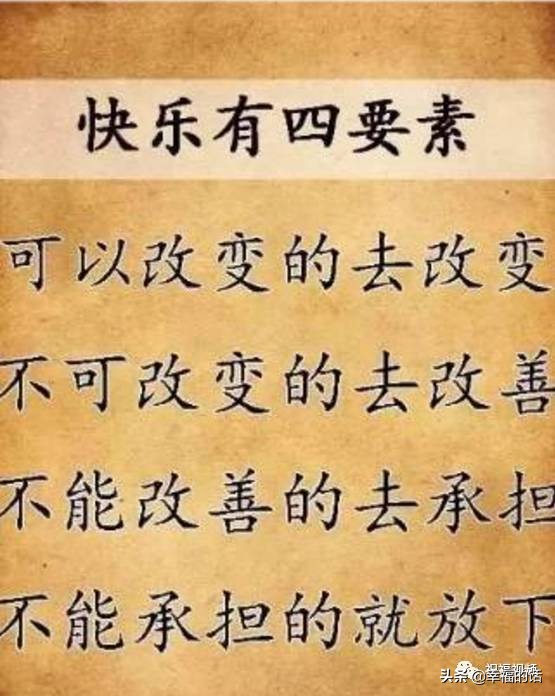 快乐有四要素
可以改变的去改变
不可改变的去改善
不能改善的去承担
不能承担的就放下
祝福视频
头条@幸福的话